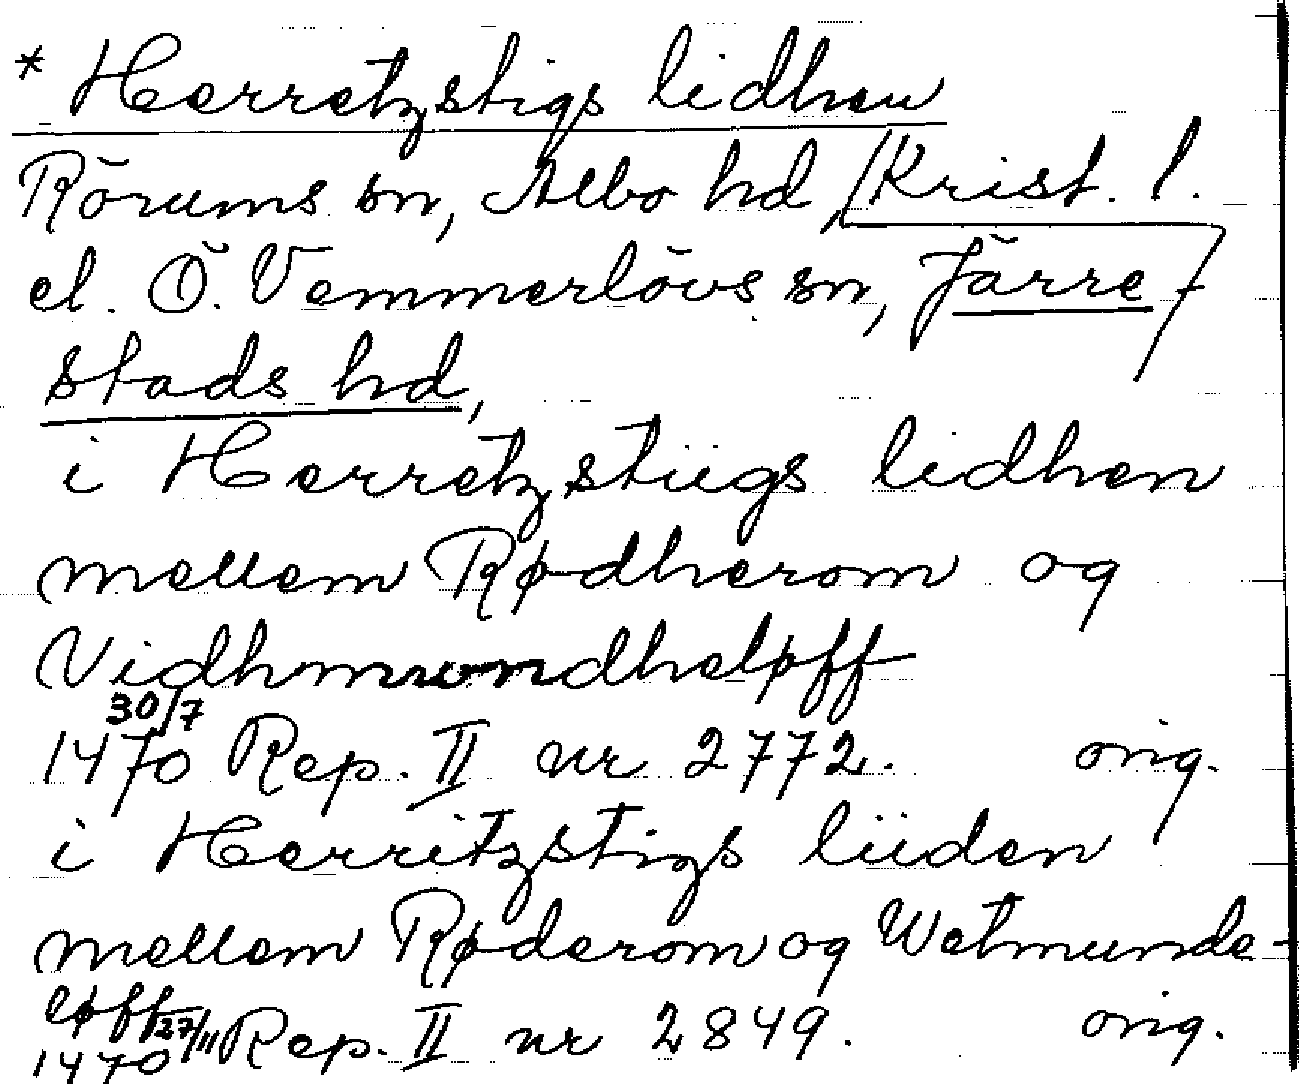 * Herretzstigs lidhen
Rörums sn, Albo hd, /Krist. l.
el. Ö. Vemmerlövs sn, Järre-/
stads hd,
i Herretzstiigs lidhen
mellem Rødherom og
Vidhmundheløff
30/7
1470 Rep. II nr 2772. orig.
i Herritzstigs liiden
mellem Røderom og Wetmunde-
løff 27/11
1470 Rep. II nr 2849. orig.